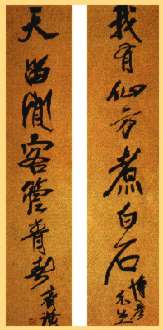 我有仙方煮白石
天留閒客管青春